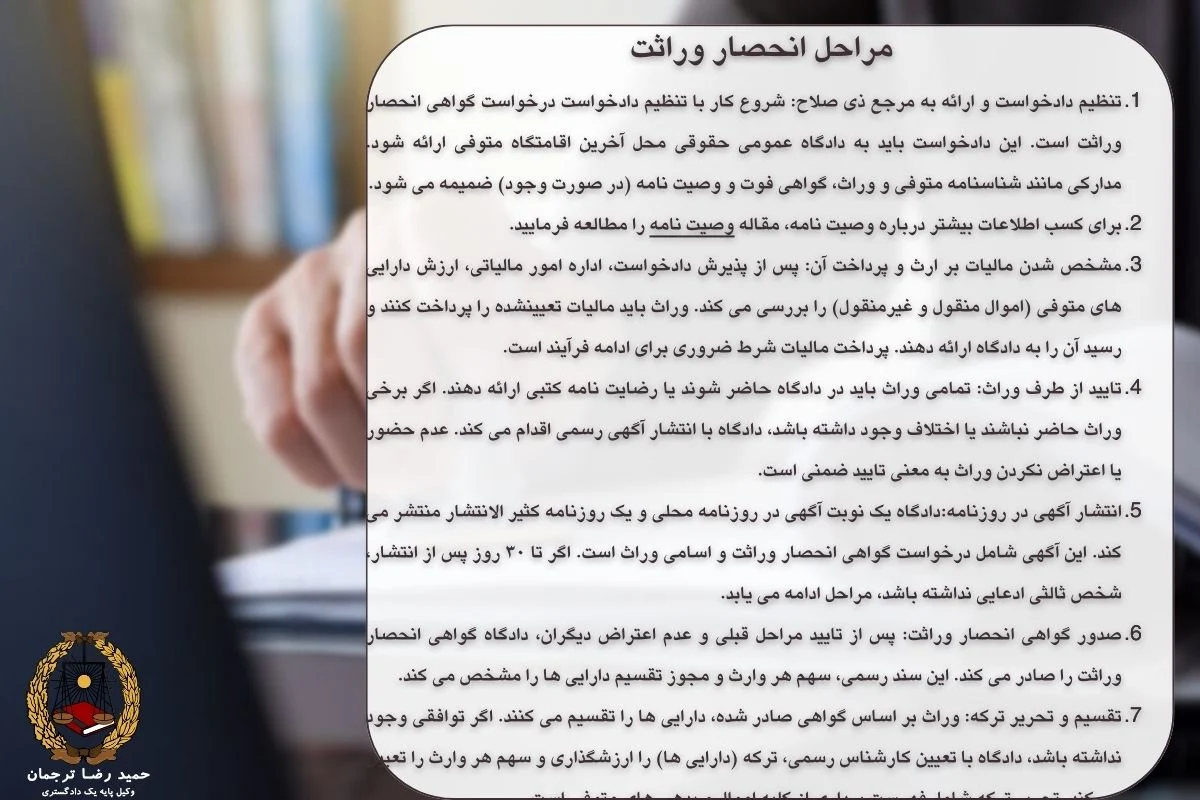 مراحل انحصار وراثت
1. تنظیم دادخواست و ارائه به مرجع ذی صلاح: شروع کار با تنظیم دادخواست درخواست گواهی انحصار
وراثت است. این دادخواست باید به دادگاه عمومی حقوقی محل آخرین اقامتگاه متوفی ارائه شود.
مدارکی مانند شناسنامه متوفی و وراث، گواهی فوت و وصیت نامه (در صورت وجود) ضمیمه می شود.
2. برای کسب اطلاعات بیشتر درباره وصیت نامه، مقاله وصیت نامه را مطالعه فرمایید.
3. مشخص شدن مالیات بر ارث و پرداخت آن: پس از پذیرش دادخواست، اداره امور مالیاتی، ارزش دارایی
های متوفی (اموال منقول و غیرمنقول) را بررسی می کند. وراث باید مالیات تعیینشده را پرداخت کنند و
رسید آن را به دادگاه ارائه دهند. پرداخت مالیات شرط ضروری برای ادامه فرآیند است.
4. تایید از طرف وراث: تمامی وراث باید در دادگاه حاضر شوند یا رضایت نامه کتبی ارائه دهند. اگر برخی
وراث حاضر نباشند یا اختلاف وجود داشته باشد، دادگاه با انتشار آگهی رسمی اقدام می کند. عدم حضور
یا اعتراض نکردن وراث به معنی تایید ضمنی است.
5. انتشار آگهی در روزنامه:دادگاه یک نوبت آگهی در روزنامه محلی و یک روزنامه کثیر الانتشار منتشر می
کند. این آگهی شامل درخواست گواهی انحصار وراثت و اسامی وراث است. اگر تا ۳۰ روز پس از انتشار،
شخص ثالثی ادعایی نداشته باشد، مراحل ادامه می یابد.
6. صدور گواهی انحصار وراثت: پس از تایید مراحل قبلی و عدم اعتراض دیگران، دادگاه گواهی انحصار
وراثت را صادر می کند. این سند رسمی، سهم هر وارث و مجوز تقسیم دارایی ها را مشخص می کند.
7. تقسیم و تحریر ترکه: وراث بر اساس گواهی صادر شده، دارایی ها را تقسیم می کنند. اگر توافقی وجود
نداشته باشد، دادگاه با تعیین کارشناس رسمی، ترکه (دارایی ها) را ارزشگذاری و سهم هر وارث را
حمید رضا ترجمان
وکیل پایه یک دادگستری